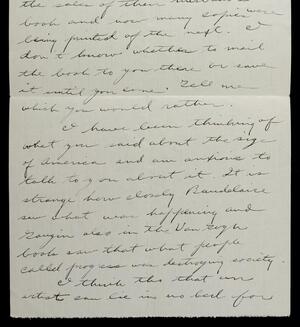 the sales of their husband's
book and how many copies were
being printed of the next. I
don't know whether to mail
the book to you there or save
it until you come. Tell me
which you would rather.
I have been thinking of
what you said about the size
of America and am anxious to
talk to you about it. It is
strange how closely Baudelaire
saw what was happening and
Gaugin also in the Van Gogh
book saw that what people
called progress was destroying society.
I think this that an
artist can lie in no bed for